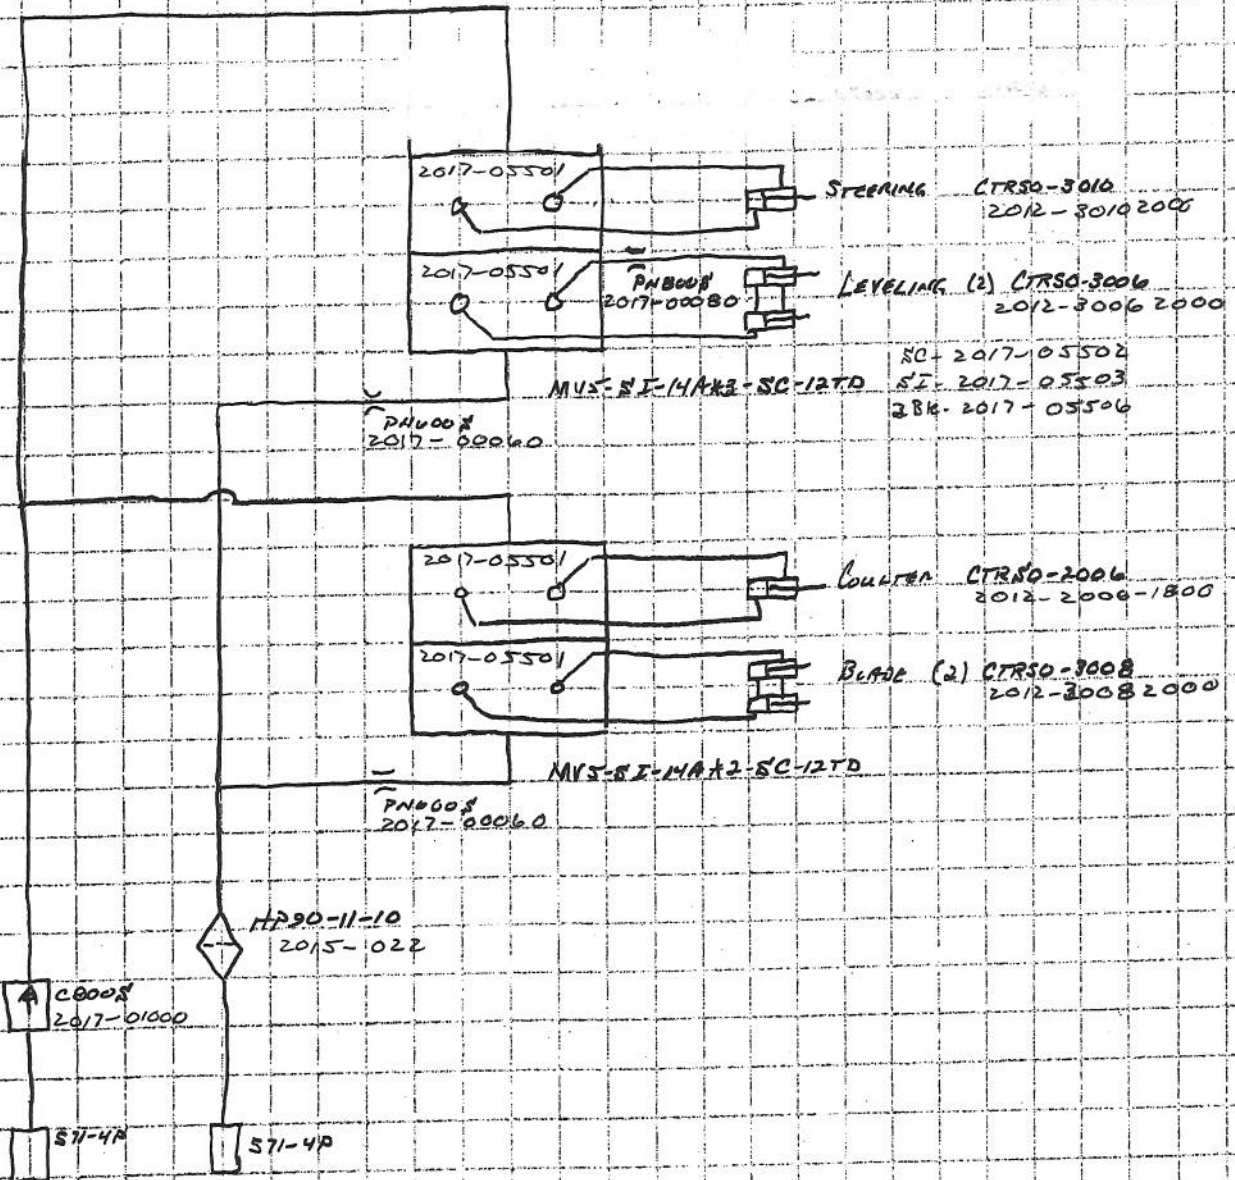 2017-05501
STEERING CTR50-3010
2012-30102000
2017-05501
PN800S
2017-00080
LEVELING (2) CTR50-3006
2012-30062000
SC- 2017-05502
SI- 2017-05503
3BK- 2017-05506
MV5-SI-14A*2-SC-12TD
PN600S
2017-00060
2017-05501
COULTER CTR50-2006
2012-2006-1800
2017-05501
BLADE (2) CTR50-3008
2012-30082000
MV5-SI-14A*2-SC-12TD
PN600S
2017-00060
HP90-11-10
2015-022
C800S
2017-01000
S71-4P
S71-4P